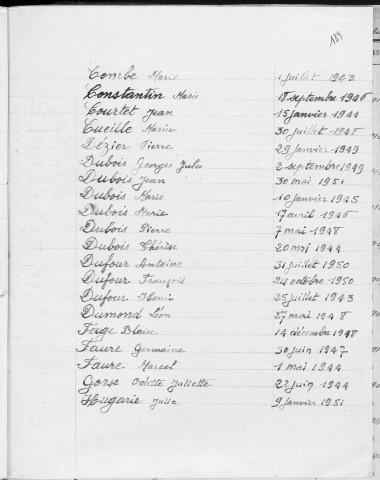 189
Combe Marie 1 juillet 1943
Constantin Marie 18 septembre 1946
Courtet Jean 15 janvier 1944
Cueille Maria 30 juillet 1948
Dézier Pierre 29 janvier 1949
Dubois Georges Jules 2 septembre 1949
Dubois Jean 30 mai 1951
Dubois Marie 10 janvier 1945
Dubois Marie 17 avril 1946
Dubois Pierre 7 mai 1948
Dubois Thérèse 20 mai 1944
Dufour Antoine 31 juillet 1950
Dufour François 24 octobre 1950
Dufour Henri 25 juillet 1943
Dumond Léon 27 mai 1948
Fage Blaise 14 décembre 1948
Faure Germaine 30 juin 1947
Faure Marcel 1 mai 1944
Gorse Odette Juliette 22 juin 1944
Hugarie Julia 9 janvier 1951